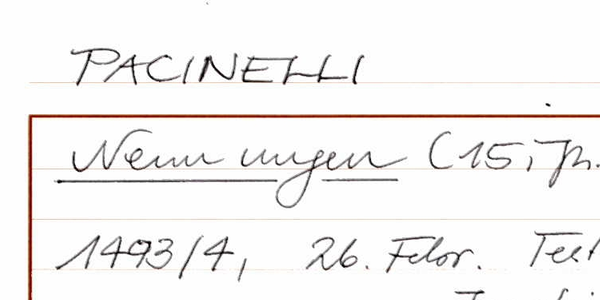 PACINELLI
Nennungen (15. Jh.
1493/4, 26. Febr. Test